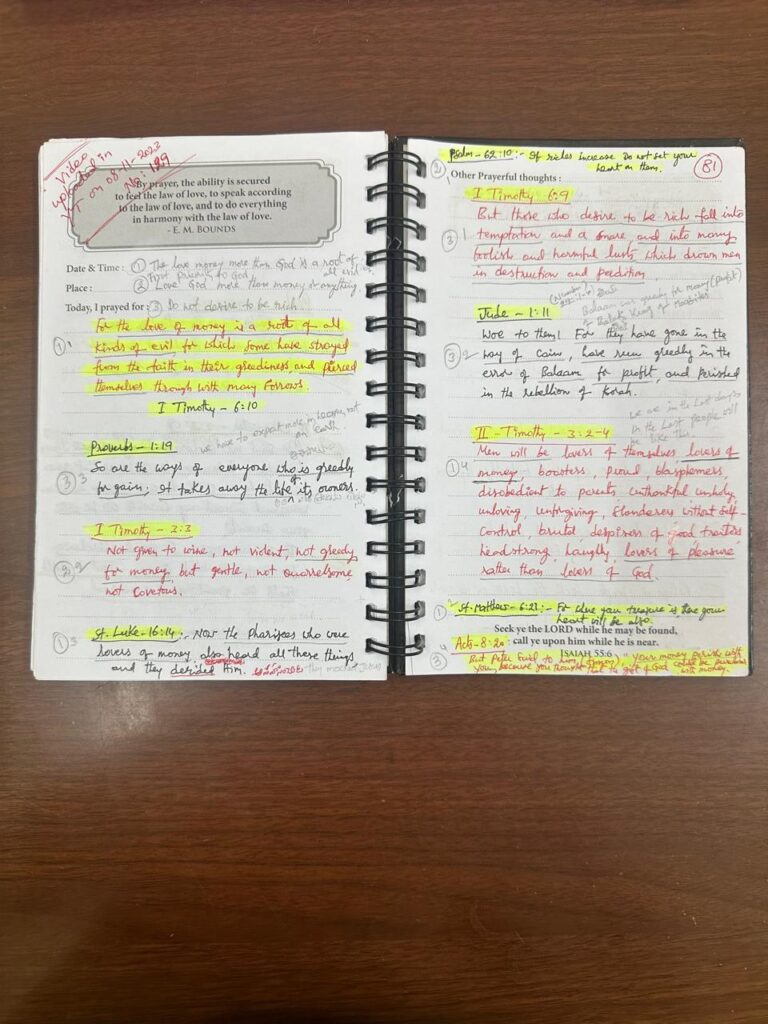 Video
uploaded in
YT on 08-11-2023
No: 129
By prayer, the ability is secured
to feel the law of love, to speak according
to the law of love, and to do everything
in harmony with the law of love.
- E. M. BOUNDS
Date & Time : ① The love money more than God is a root of all evil
Place : ② Love God more than money or anything.
Today, I prayed for : ③ Do not desire to be rich
For the love of money is a root of all
① kinds of evil for which some have strayed
from the faith in their greediness, and pierced
themselves through with many sorrows.
I Timothy - 6:10
we have to expect more in heaven not
on earth
Proverbs - 1:19
③ 3 So are the ways of everyone who is greedily
for gain; It takes away the life of its owners.
I Timothy - 3:3
② 2 Not given to wine, not violent, not greedy
for money, but gentle, not quarrelsome
not covetous.
① 3 St. Luke - 16:14 :- Now the Pharisees who were
lovers of money, also heard all these things
and they derided Him. they mocked Jesus
Psalm - 62:10 :- If riches increase Do not set your
heart on them.
81
② Other Prayerful thoughts :
I Timothy 6:9
But those who desire to be rich fall into
③ 1 temptation and a snare and into many
foolish and harmful lusts which drown men
in destruction and perdition
Balaam was greedy for money (profit)
Balak King of Moabites
Jude - 1:11
Woe to them! For they have gone in the
③ 2 way of Cain, have run greedily in the
error of Balaam for profit, and perished
in the rebellion of Korah.
we are in the last days
in the last people will
be like this
II - Timothy - 3:2-4
Men will be lovers of themselves, lovers of
① 4 money, boasters, proud, blasphemers,
disobedient to parents unthankful unholy,
unloving, unforgiving, slanderers without self-
control, brutal, despisers of good traitors
headstrong, haughty, lovers of pleasure
rather than lovers of God.
① 2 St. Matthew - 6:21 :- For where you treasure is there your
heart will be also.
Seek ye the LORD while he may be found,
call ye upon him while he is near.
ISAIAH 55:6
Acts - 8:20
③ 4 But Peter said to him "your money perish with
you, because you thought that the gift of God could be purchased
with money.